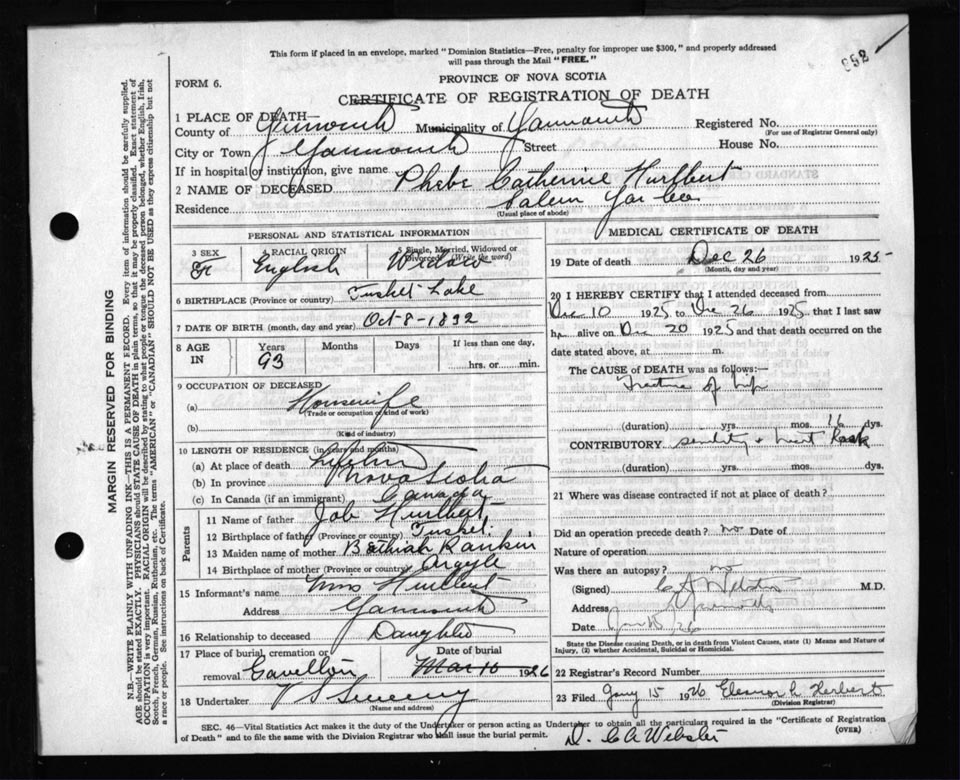 This form if placed in an envelope, marked "Dominion Statistics—Free, penalty for improper use $300," and properly addressed
will pass through the Mail "FREE."
FORM 6.
PROVINCE OF NOVA SCOTIA
CERTIFICATE OF REGISTRATION OF DEATH
1 PLACE OF DEATH—
County of Yarmouth Municipality of Yarmouth Registered No.
(For use of Registrar General only)
City or Town Yarmouth Street House No.
If in hospital or institution, give name
2 NAME OF DECEASED Phebe Catherine Hurlbert
Residence Salem Yar Co
(Usual place of abode)
PERSONAL AND STATISTICAL INFORMATION
3 SEX F
4 RACIAL ORIGIN English
5 Single, Married, Widowed or Divorced (Write the word) Widow
6 BIRTHPLACE (Province or country) Tusket Lake
7 DATE OF BIRTH (month, day and year) Oct-8-1832
8 AGE IN Years 93 Months Days If less than one day, hrs. or min.
9 OCCUPATION OF DECEASED
(a) Housewife
(Trade or occupation or kind of work)
(b)
(Kind of industry)
10 LENGTH OF RESIDENCE (in years and months)
(a) At place of death
(b) In province Nova Scotia
(c) In Canada (if an immigrant) Canada
Parents
11 Name of father Job Hurlbert
12 Birthplace of father (Province or country) Tusket
13 Maiden name of mother Bethiah Rankin
14 Birthplace of mother (Province or country) Argyle
15 Informant's name Hurlbert
Address Yarmouth
16 Relationship to deceased Daughter
17 Place of burial, cremation or removal Date of burial Mar 10 1926
18 Undertaker V S Sweeny
(Name and address)
MEDICAL CERTIFICATE OF DEATH
19 Date of death Dec 26 1925
(Month, day and year)
20 I HEREBY CERTIFY that I attended deceased from
Dec 10 1925 to Dec 26 1925, that I last saw
h alive on Dec 20 1925 and that death occurred on the
date stated above, at m.
The CAUSE of DEATH was as follows:—
Fracture of hip
(duration) yrs. mos. 16 dys.
CONTRIBUTORY senility +
(duration) yrs. mos. dys.
21 Where was disease contracted if not at place of death?
Did an operation precede death? no Date of
Nature of operation
Was there an autopsy? no
(Signed) C A Webster M.D.
Address Yarmouth
Date
State the Disease causing Death, or in death from Violent Causes, state (1) Means and Nature of
Injury, (2) whether Accidental, Suicidal or Homicidal.
22 Registrar's Record Number
23 Filed Jany 15 1926 Herbert
(Division Registrar)
SEC. 46—Vital Statistics Act makes it the duty of the Undertaker or person acting as Undertaker to obtain all the particulars required in the "Certificate of Registration
of Death" and to file the same with the Division Registrar who shall issue the burial permit.
(OVER)
D. C A Webster
MARGIN RESERVED FOR BINDING
N.B.—WRITE PLAINLY WITH UNFADING INK—THIS IS A PERMANENT RECORD. Every item of information should be carefully supplied.
AGE should be stated EXACTLY. PHYSICIANS should STATE CAUSE OF DEATH in plain terms, so that it may be properly classified. Exact statement of
OCCUPATION is very important. RACIAL ORIGIN will be described by stating to what people or tongue the deceased person belonged, whether English, Irish,
Scotch, French, German, Russian, Ruthenian, etc. The terms "AMERICAN" or "CANADIAN" SHOULD NOT BE USED as they express citizenship but not
a race or people. See instructions on back of Certificate.